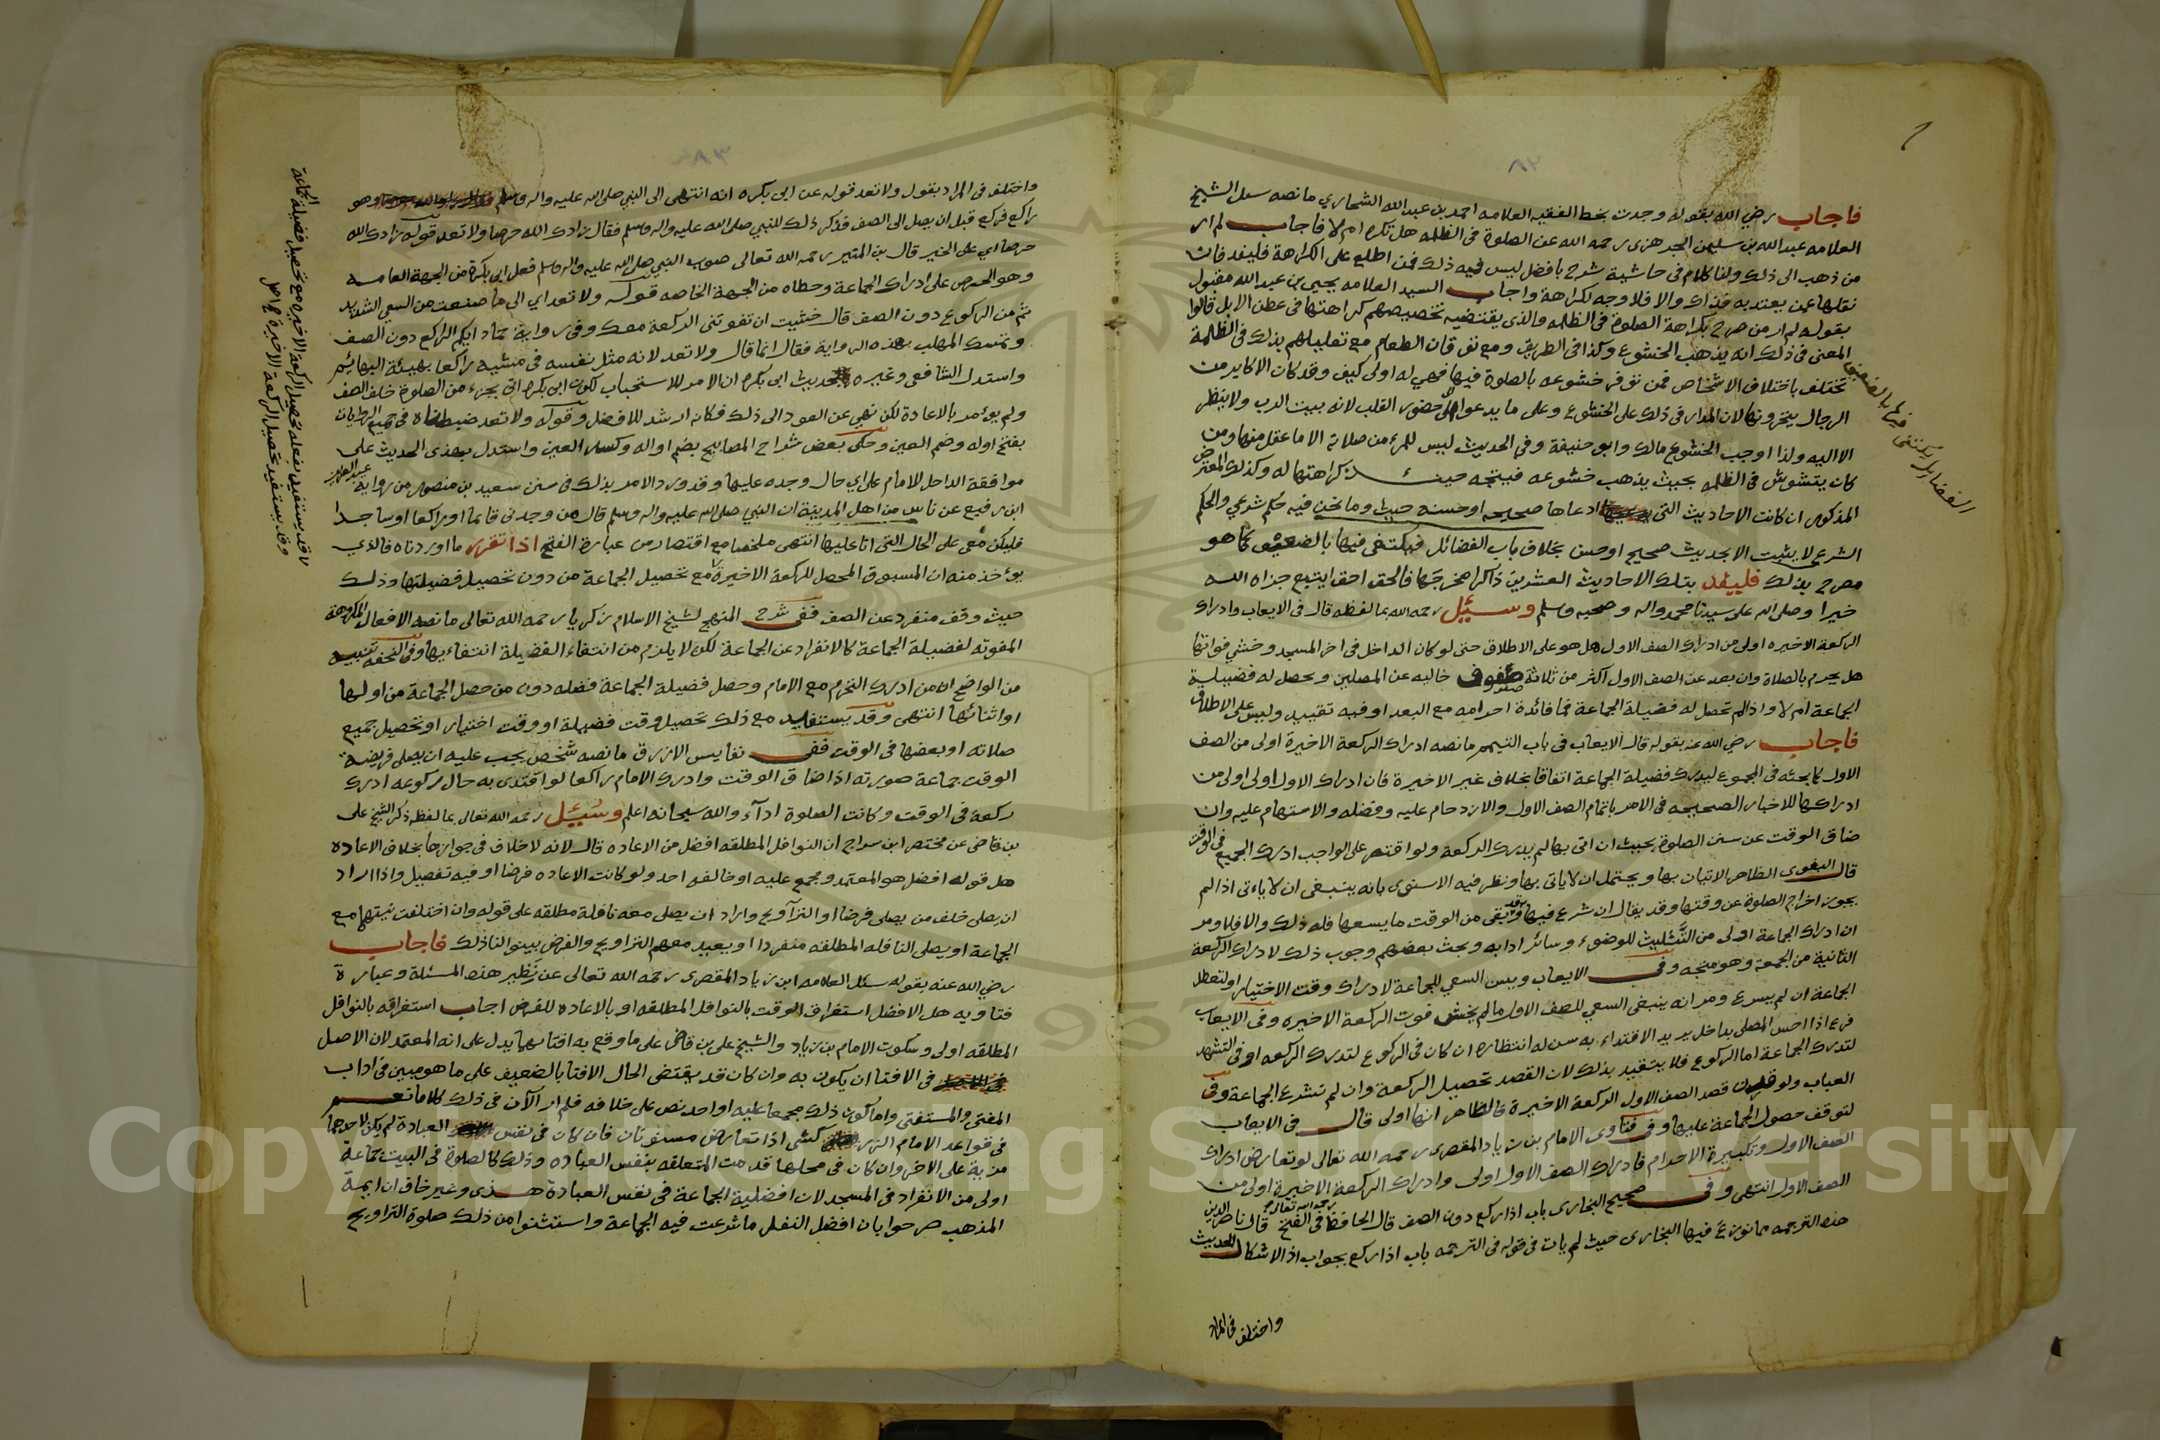 ٨٢
فاجاب رضي الله بقوله وجدت بخط الفقيه العلامه احمد بن عبد الله الشحاري ما نصه سئل الشيخ
العلامه عبد الله بن سليمن الجرهزى رحمه الله عن الصلوة فى الظلمه هل تكره ام لا فاجاب لم ار
من ذهب الى ذلك ولنا كلام فى حاشية شرح بافضل ليس فيه ذلك فمن اطلع على الكراهة فليفد فان
نقلها عمن يعتد به فذاك والا فلا وجه لكراهة واجاب السيد العلامه يحيى بن عبد الله مقبول
بقوله لم ار من صرح بكراهة الصلوة فى الظلمه والذى يقتضيه تخصيصهم كراهتها فى عطن الابل قالوا
المعنى فى ذلك انه يذهب الخشوع وكذا فى الطريق ومع توقان الطعام مع تعليلهم بذلك فى الظلمة
تختلف باختلاف الاشخاص فمن توفر خشوعه بالصلوة فيها فهي له اولى كيف وقد كان الاكابر من
الرجال يتحرونها لان المدار فى ذلك على الخشوع وعلى ما يدعوا الى حضور القلب لانه بيت الرب ولا ينظر
الا اليه ولذا اوجب الخشوع مالك وابو حنيفة وفى الحديث ليس للمرء من صلاته الا ما عقل منها ومن
كان يتشوش فى الظلمه بحيث يذهب خشوعه فيتجه حينئذ كراهتها له وكذلك المعترض
المذكور ان كانت الاحاديث التى ادعاها صحيحه او حسنه حيث وما نحن فيه حكم شرعي والحكم
الشرعى لا يثبت الا بحديث صحيح او حسن بخلاف باب الفضائل فيكتفى فيها بالضعيف كما هو
مصرح بذلك فليفد بتلك الاحاديث العشرين ذاكرا مخرجها فالحق احق ان يتبع جزاه الله
خيرا وصلى الله على سيدنا محمد واله وصحبه وسلم وسئل رحمه الله بما لفظه قال فى الايعاب وادراك
الركعة الاخيره اولى من ادراك الصف الاول هل هو على الاطلاق حتى لو كان الداخل فى اخر المسجد وخشي فواتها
هل يحرم بالصلاة وان بعد عن الصف الاول اكثر من ثلاثة صفوف خاليه عن المصلين ويحصل له فضيلة
الجماعة ام لا واذا لم تحصل له فضيلة الجماعة فما فائدة احرامه مع البعد او فيه تقييد وليس على الاطلاق
فاجاب رضي الله عنه بقوله قال الايعاب فى باب التيمم ما نصه ادراك الركعة الاخيرة اولى من الصف
الاول كما بحثه فى المجموع ليدرك فضيلة الجماعة اتفاقا بخلاف غير الاخيرة فان ادراك الاول اولى من
ادراكها للاخبار الصحيحه فى الامر باتمام الصف الاول والازدحام عليه وفضله والاستهام عليه وان
ضاق الوقت عن سنن الصلوة بحيث ان اتى بها لم يدرك الركعة ولو اقتصر على الواجب ادرك الجميع فى الوقت
قال البغوى الظاهر الاتيان بها ويحتمل ان لا ياتى بها ونظر فيه الاسنوى بانه ينبغى ان لا ياتى اذا لم
يجوز اخراج الصلوة عن وقتها وقد يقال ان شرع فيها وقد بقى من الوقت ما يسعها فله ذلك والا فلا ومر
ان ادراك الجماعة اولى من التثليث للوضوء وسائر ادابه وبحث بعضهم وجوب ذلك لادراك الركعة
الثانية من الجمعة وهو متجه وفى الايعاب ويسن السعي للجماعة لادراك وقت الاختيار او لتعطل
الجماعة ان لم يسرع ومر انه ينبغى السعي للصف الاول ما لم يخش فوت الركعة الاخيره وفى الايعاب
فرع اذا احس المصلى بداخل يريد الاقتداء به سن له انتظاره ان كان فى الركوع لتدرك الركعه او فى التشهد
لتدرك الجماعة اما الركوع فلا يتقيد بذلك لان القصد تحصيل الركعة وان لم تشرع الجماعة وفى
العباب ولو قصد الصف الاول الركعة الاخيرة فالظاهر انها اولى قال فى الايعاب
لتوقف حصول الجماعة عليها وفى فتاوى الامام بن زياد المقصرى رحمه الله تعالى لو تعارض ادراك
الصف الاول وتكبيرة الاحرام فادراك الصف الاول اولى وادراك الركعة الاخيرة اولى من
الصف الاول انتهى وفى صحيح البخارى باب اذا ركع دون الصف قال الحافظ فى الفتح رحمه الله تعالى قال ناصر الدين
هذه الترجمه مما نوزع فيها البخارى حيث لم يات فى قوله فى الترجمه باب اذا ركع بجواب اذا لاشكال الحديث
واختلف فى المراد
الفضايل يكتفى فيها بالضعيف
٨٣
واختلف فى المراد بقول ولا تعد قوله عن ابى بكره انه انتهى الى النبي صلى الله عليه واله وسلم وهو
راكع فركع قبل ان يصل الى الصف فذكر ذلك للنبي صلى الله عليه واله وسلم فقال زادك الله حرصا ولا تعد قوله زادك الله
حرصا اي على الخير قال بن المنير رحمه الله تعالى صوب النبي صلى الله عليه واله وسلم فعل ابى بكرة من الجهة العامه
وهو الحرص على ادراك الجماعة وخطاه من الجهة الخاصه قوله ولا تعد اي الى ما صنعت من السعي الشديد
ثم من الركوع دون الصف قال خشيت ان تفوتنى الركعة معك وفى رواية حماد ايكم الراكع دون الصف
وتمسك المهلب بهذه الرواية فقال انما قال ولا تعد لانه مثل نفسه فى مشيه راكعا بهيئة البهائم
واستدل الشافعى وغيره بحديث ابى بكره ان الامر للاستحباب لكون ابى بكره اتى بجزء من الصلوة خلف الصف
ولم يؤمر بالاعادة لكن نهي عن العود الى ذلك فكانه ارشد للافضل وقوله ولا تعد ضبطناه فى جميع الروايات
بفتح اوله وضم العين وحكى بعض شراح المصابيح بضم اوله وكسر العين واستدل بهذى الحديث على
موافقة الداخل للامام على اي حال وجده عليها وقد ورد الامر بذلك فى سنن سعيد بن منصور من رواية عبد العزيز
ابن رفيع عن ناس من اهل المدينة ان النبي صلى الله عليه واله وسلم قال من وجدنى قائما او راكعا او ساجدا
فليكن معي على الحال التى انا عليها انتهى ملخصا مع اقتصار من عبارة الفتح اذا تقرر ما اوردناه فالذي
يؤخذ منه ان المسبوق المحصل للركعة الاخيرة مع تحصيل الجماعة من دون تحصيل فضيلتها وذلك
حيث وقف منفرد عن الصف ففى شرح المنهج لشيخ الاسلام زكريا رحمه الله تعالى ما نصه الافعال المكروهة
المفوته لفضيلة الجماعة كالانفراد عن الجماعة لكن لا يلزم من انتفاء الفضيلة انتفاءيها وفى التحفه تنبيه
من الواضح ان من ادرك التحرم مع الامام وحصل فضيلة الجماعة فضله دون من حصل الجماعة من اولها
او اثنائها انتهى وقد يستفيد مع ذلك تحصيل وقت فضيلة او وقت اختيار او تحصيل جميع
صلاته او بعضها فى الوقت ففى نفايس الازرق ما نصه شخص يجب عليه ان يصلى فريضة
الوقت جماعة صورته اذا ضاق الوقت وادرك الامام راكعا لو اقتدى به حال ركوعه ادرك
ركعة فى الوقت وكانت الصلوة اداء والله سبحانه اعلم وسئل رحمه الله تعالى بما لفظه ذكر الشيخ على
بن قاضى عن مختصر ابن سراج ان النوافل المطلقه افضل من الاعاده قال لانه لا خلاف فى جوازها بخلاف الاعاده
هل قوله افضل هو المعتمد ومجمع عليه او خالفه احد ولو كانت الاعاده فرضا او فيه تفصيل واذا اراد
ان يصلى خلف من يصلى فرضا او التراويح واراد ان يصلى معه نافلة مطلقه على قوله وان اختلفت نيتهما مع
الجماعة او يصلى النافله المطلقه منفردا او يعيد معهم التراويح والفرض بينوا لنا ذلك فاجاب
رضي الله عنه بقوله سئل العلامه ابن زياد المقصرى رحمه الله تعالى عن نظير هذه المسئلة وعبارة
فتاويه هل الافضل استغراق الوقت بالنوافل المطلقه او بالاعاده للفرض اجاب استغراقه بالنوافل
المطلقه اولى وسكوت الامام بن زياد والشيخ على بن قاضى على ما وقع به افتائهما يدل على انه المعتمد لان الاصل
فى الافتا ان يكون به وان كان قد يقتضى الحال الافتا بالضعيف على ما هو مبين فى اداب
المفتى والمستفتى واما كون ذلك مجمعا عليه او احد نص على خلافه فلم ار الآن فى ذلك كلاما نعم
فى قواعد الامام الزركشى اذا تعارض مسنونان فان كان فى نفس العبادة لم يكن لاحدهما
مزية على الاخر وان كان فى محلها قدمت المتعلقه بنفس العباده وذلك كالصلوة فى البيت جماعة
اولى من الانفراد فى المسجد لان افضلية الجماعة فى نفس العبادة هذى وغير خاف ان ايمة
المذهب صرحوا بان افضل النفل ما شرعت فيه الجماعة واستثنوا من ذلك صلوة التراويح
وقد يستفيد بفعله تحصيل الركعة الاخيره مع تحصيل فضيلة الجماعة
وقد يستفيد تحصيل الركعة الاخيرة
Copyright © King Saud University